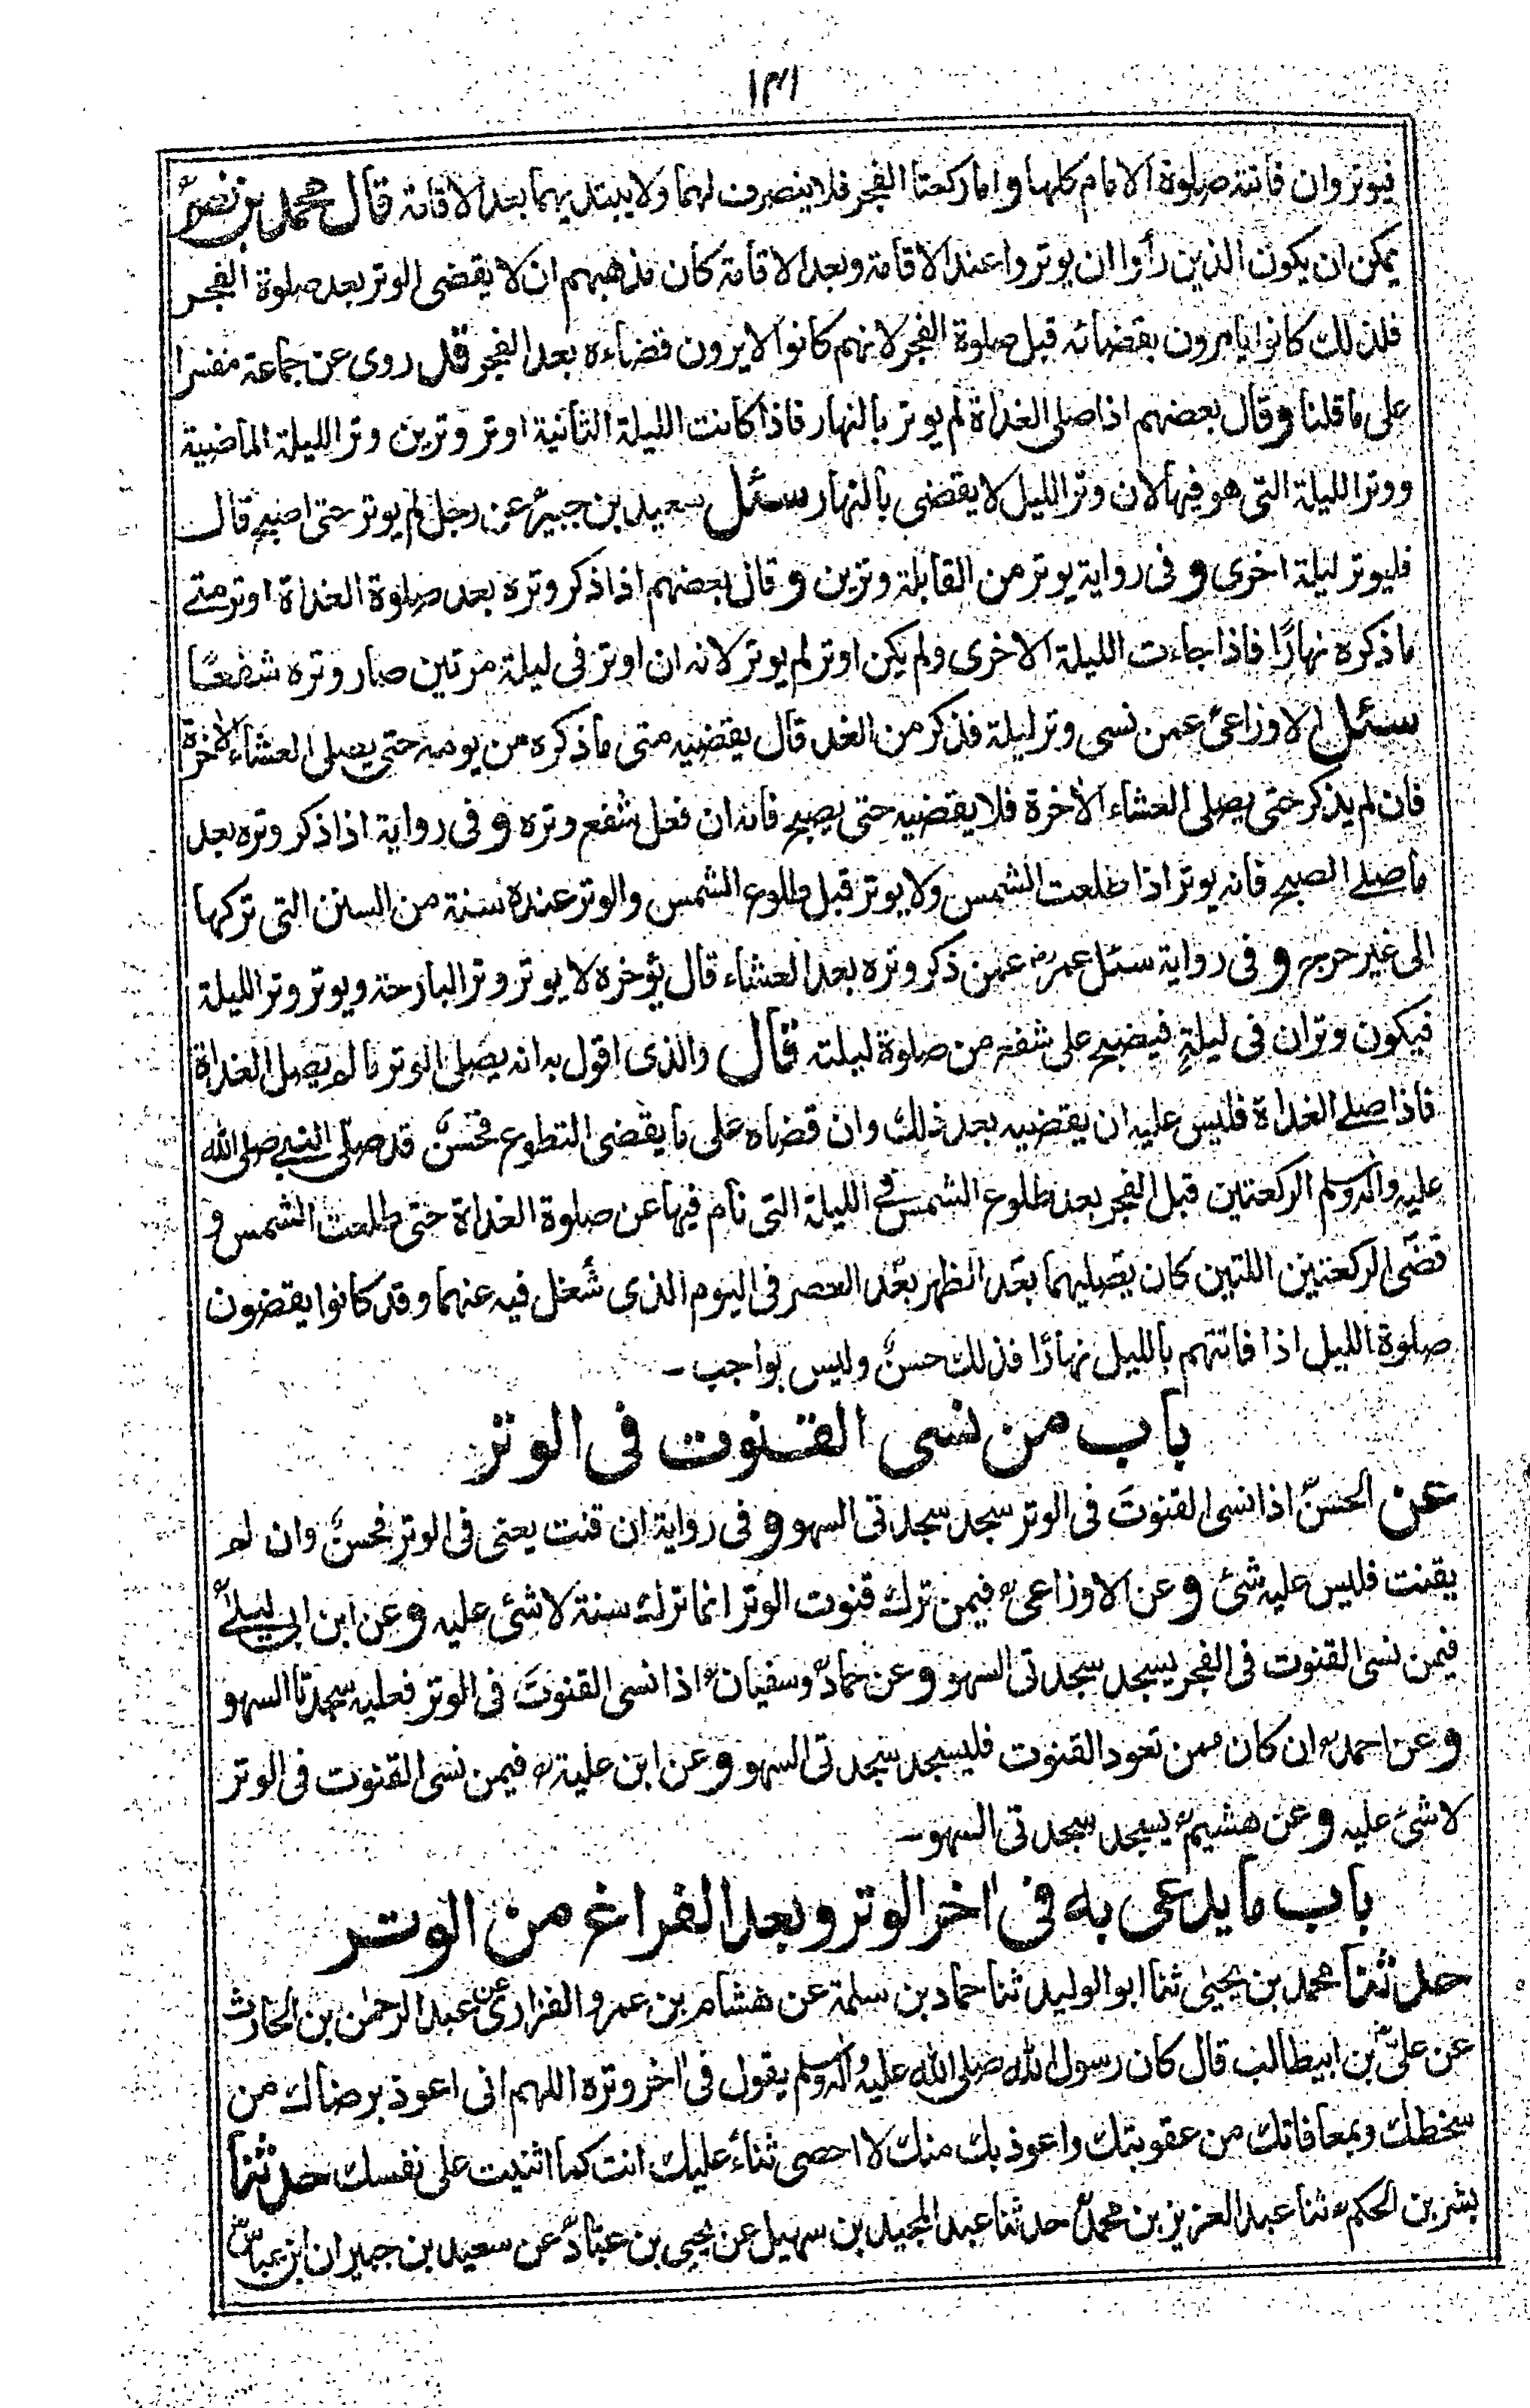 ١٣١
فيوتر وان فاتته صلوة الامام كلها واما ركعتا الفجر فلا ينصرف لهما ولا يبتديهما بعد الاقامة قال محمد بن نصرؒ
يمكن ان يكون الذين رأوا ان يوتروا عند الاقامة وبعد الاقامة كان مذهبهم ان لا يقضى الوتر بعد صلوة الفجر
فلذلك كانوا يامرون بقضائه قبل صلوة الفجر لانهم كانوا لا يرون قضاءه بعد الفجر قد روى عن جماعة مفسرا
على ما قلنا وقال بعضهم اذا صلى الغداة لم يوتر بالنهار فاذا كانت الليلة الثانية اوتر وترين وتر الليلة الماضية
ووتر الليلة التى هو فيها لان وتر الليل لا يقضى بالنهار سئل سعيد بن جبيرؒ عن رجل لم يوتر حتى اصبح قال
فليوتر ليلة اخرى وفى رواية يوتر من القابلة وترين وقال بعضهم اذا ذكر وتره بعد صلوة الغداة اوتر متے
ما ذكره نهارًا فاذا جاءت الليلة الاخرى ولم يكن اوتر لم يوتر لانه ان اوتر فى ليلة مرتين صار وتره شفعًا
سئل الاوزاعىؒ عمن نسى وتر ليلة فذكر من الغد قال يقضيه متى ما ذكره من يومه حتى يصلى العشاء الاٰخرة
فان لم يذكر حتى يصلى العشاء الاٰخرة فلا يقضيه حتى يصبح فانه ان فعل شفع وتره وفى رواية اذا ذكر وتره بعد
ما صلے الصبح فانه يوتر اذا طلعت الشمس ولا يوتر قبل طلوع الشمس والوتر عنده سنة من السنن التى تركها
الى غير حرج وفى رواية سئل عمرؓ عمن ذكر وتره بعد العشاء قال يؤخره لا يوتر وتر البارحة ويوتر وتر الليلة
فيكون وتران فى ليلةٍ فيصبح على شفع من صلوة ليلته قال والذى اقول به انه يصلى الوتر ما لم يصل الغداة
فاذا صلے الغداة فليس عليه ان يقضيه بعد ذلك وان قضاه على ما يقضى التطوع فحسنٌ قد صلى النبے صلى الله
عليه واٰله وسلم الركعتين قبل الفجر بعد طلوع الشمس فى الليلة التى نام فيها عن صلوة الغداة حتى طلعت الشمس و
قضى الركعتين اللتين كان يصليهما بعد الظهر بعد العصر فى اليوم الذى شُغل فيه عنهما وقد كانوا يقضون
صلوة الليل اذا فاتتهم بالليل نهارًا فذلك حسنٌ وليس بواجب ــ
باب من نسى القنوت فى الوتر
عن الحسنؒ اذا نسى القنوتَ فى الوتر سجد سجدتى السهو وفى رواية ان قنت يعنى فى الوتر فحسنٌ وان لم
يقنت فليس عليه شئ وعن الاوزاعىؒ فيمن ترك قنوت الوتر انما ترك سنة لا شئ عليه وعن ابن ابى ليلےؒ
فيمن نسى القنوت فى الفجر يسجد سجدتى السهو وعن حمادؒ وسفيانؒ اذا نسى القنوتَ فى الوتر فعليه سجدتا السهو
وعن احمدؒ ان كان ممن تعود القنوت فليسجد سجدتى السهو وعن ابن عليةؒ فيمن نسى القنوت فى الوتر
لا شئ عليه وعن هشيمؒ يسجد سجدتى السهو ــ
باب ما يدعى به فى اٰخر الوتر وبعد الفراغ من الوتر
حدثنا محمد بن يحيىٰ ثنا ابو الوليد ثنا حماد بن سلمة عن هشام بن عمرو الفزارى عن عبد الرحمٰن بن الحارث
عن علىؓ بن ابيطالب قال كان رسول الله صلى الله عليه واٰله وسلم يقول فى اٰخر وتره اللهم انى اعوذ برضاك من
سخطك وبمعافاتك من عقوبتك واعوذ بك منك لا احصى ثناءً عليك انت كما اثنيت على نفسك حدثنا
بشر بن الحكمؒ ثنا عبد العزيز بن محمدؒ حدثنا عبد المجيد بن سهيل عن يحيى بن عبّادؒ عن سعيد بن جبير ان ابن عباسؓ